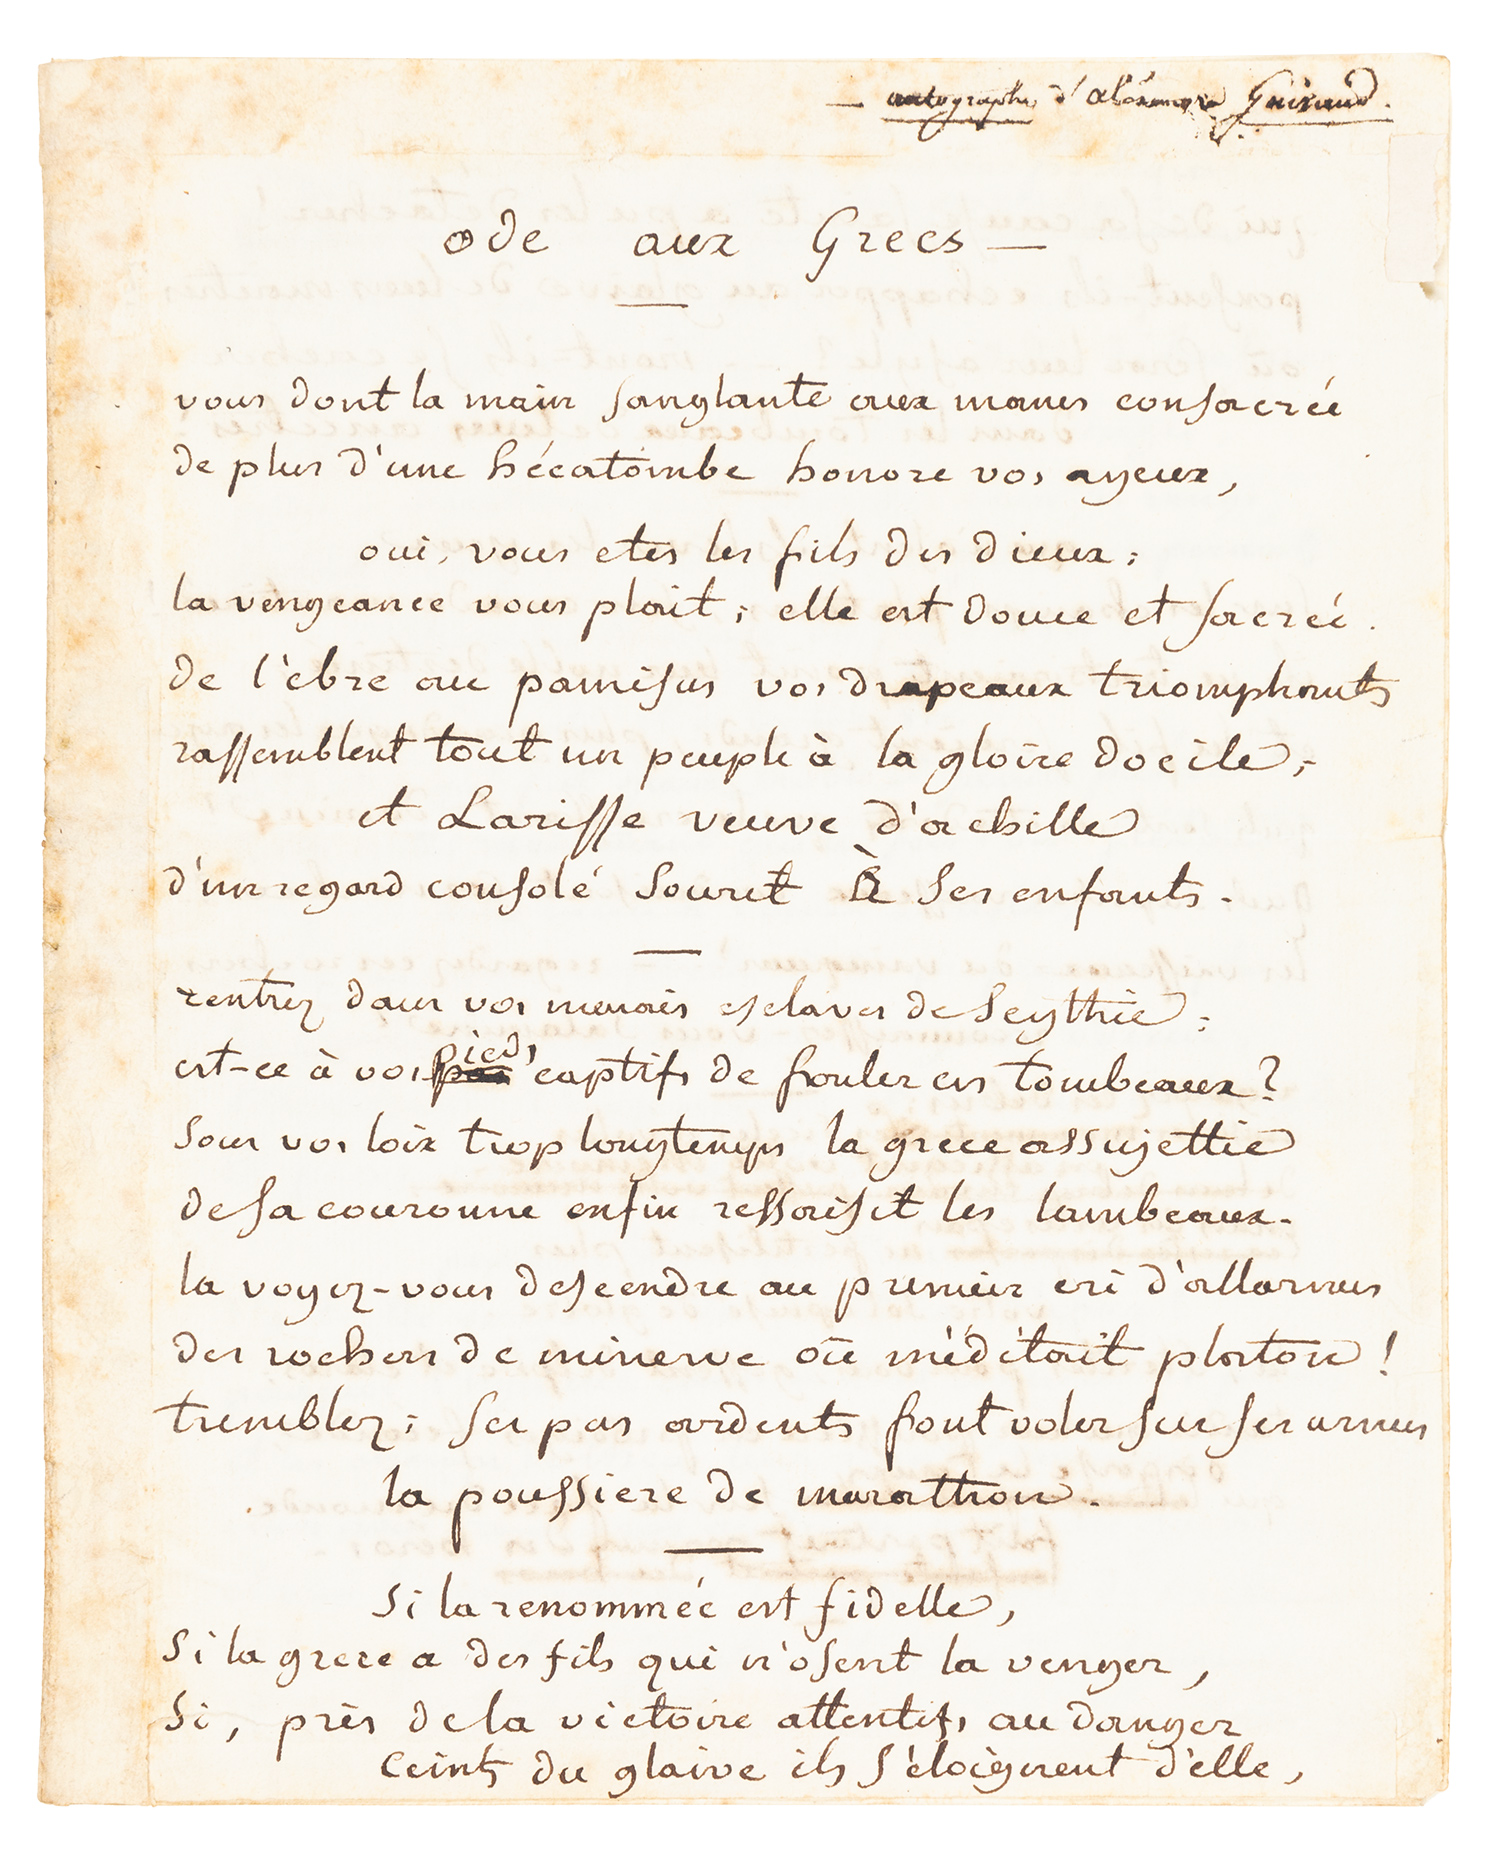 — autographe d'alexandre Guiraud.
ode aux Grecs —
vous dont la main sanglante aux manes consacrée
de plus d'une hécatombe honore vos ayeux,
oui, vous etes les fils des dieux;
la vengeance vous plait; elle est douce et sacrée.
de l'ebre au pamisus vos drapeaux triomphants
rassemblent tout un peuple à la gloire docile;
et Larisse veuve d'achille
d'un regard consolé sourit À ses enfants.
rentrez dans vos marais esclaves de Scythie;
est-ce à vos pas pieds captifs de fouler ces tombeaux?
Sous vos loix trop longtemps la grece assujettie
de sa couronne enfin ressaisit les lambeaux.
la voyez-vous descendre au premier cri d'allarmes
des rochers de minerve où méditait platon!
tremblez; ses pas ardents font voler sur ses armes
la poussiere de marathon.
Si la renommée est fidelle,
Si la grece a des fils qui n'osent la venger,
Si, près de la victoire attentifs au danger
Ceints du glaive ils s'éloignent d'elle,